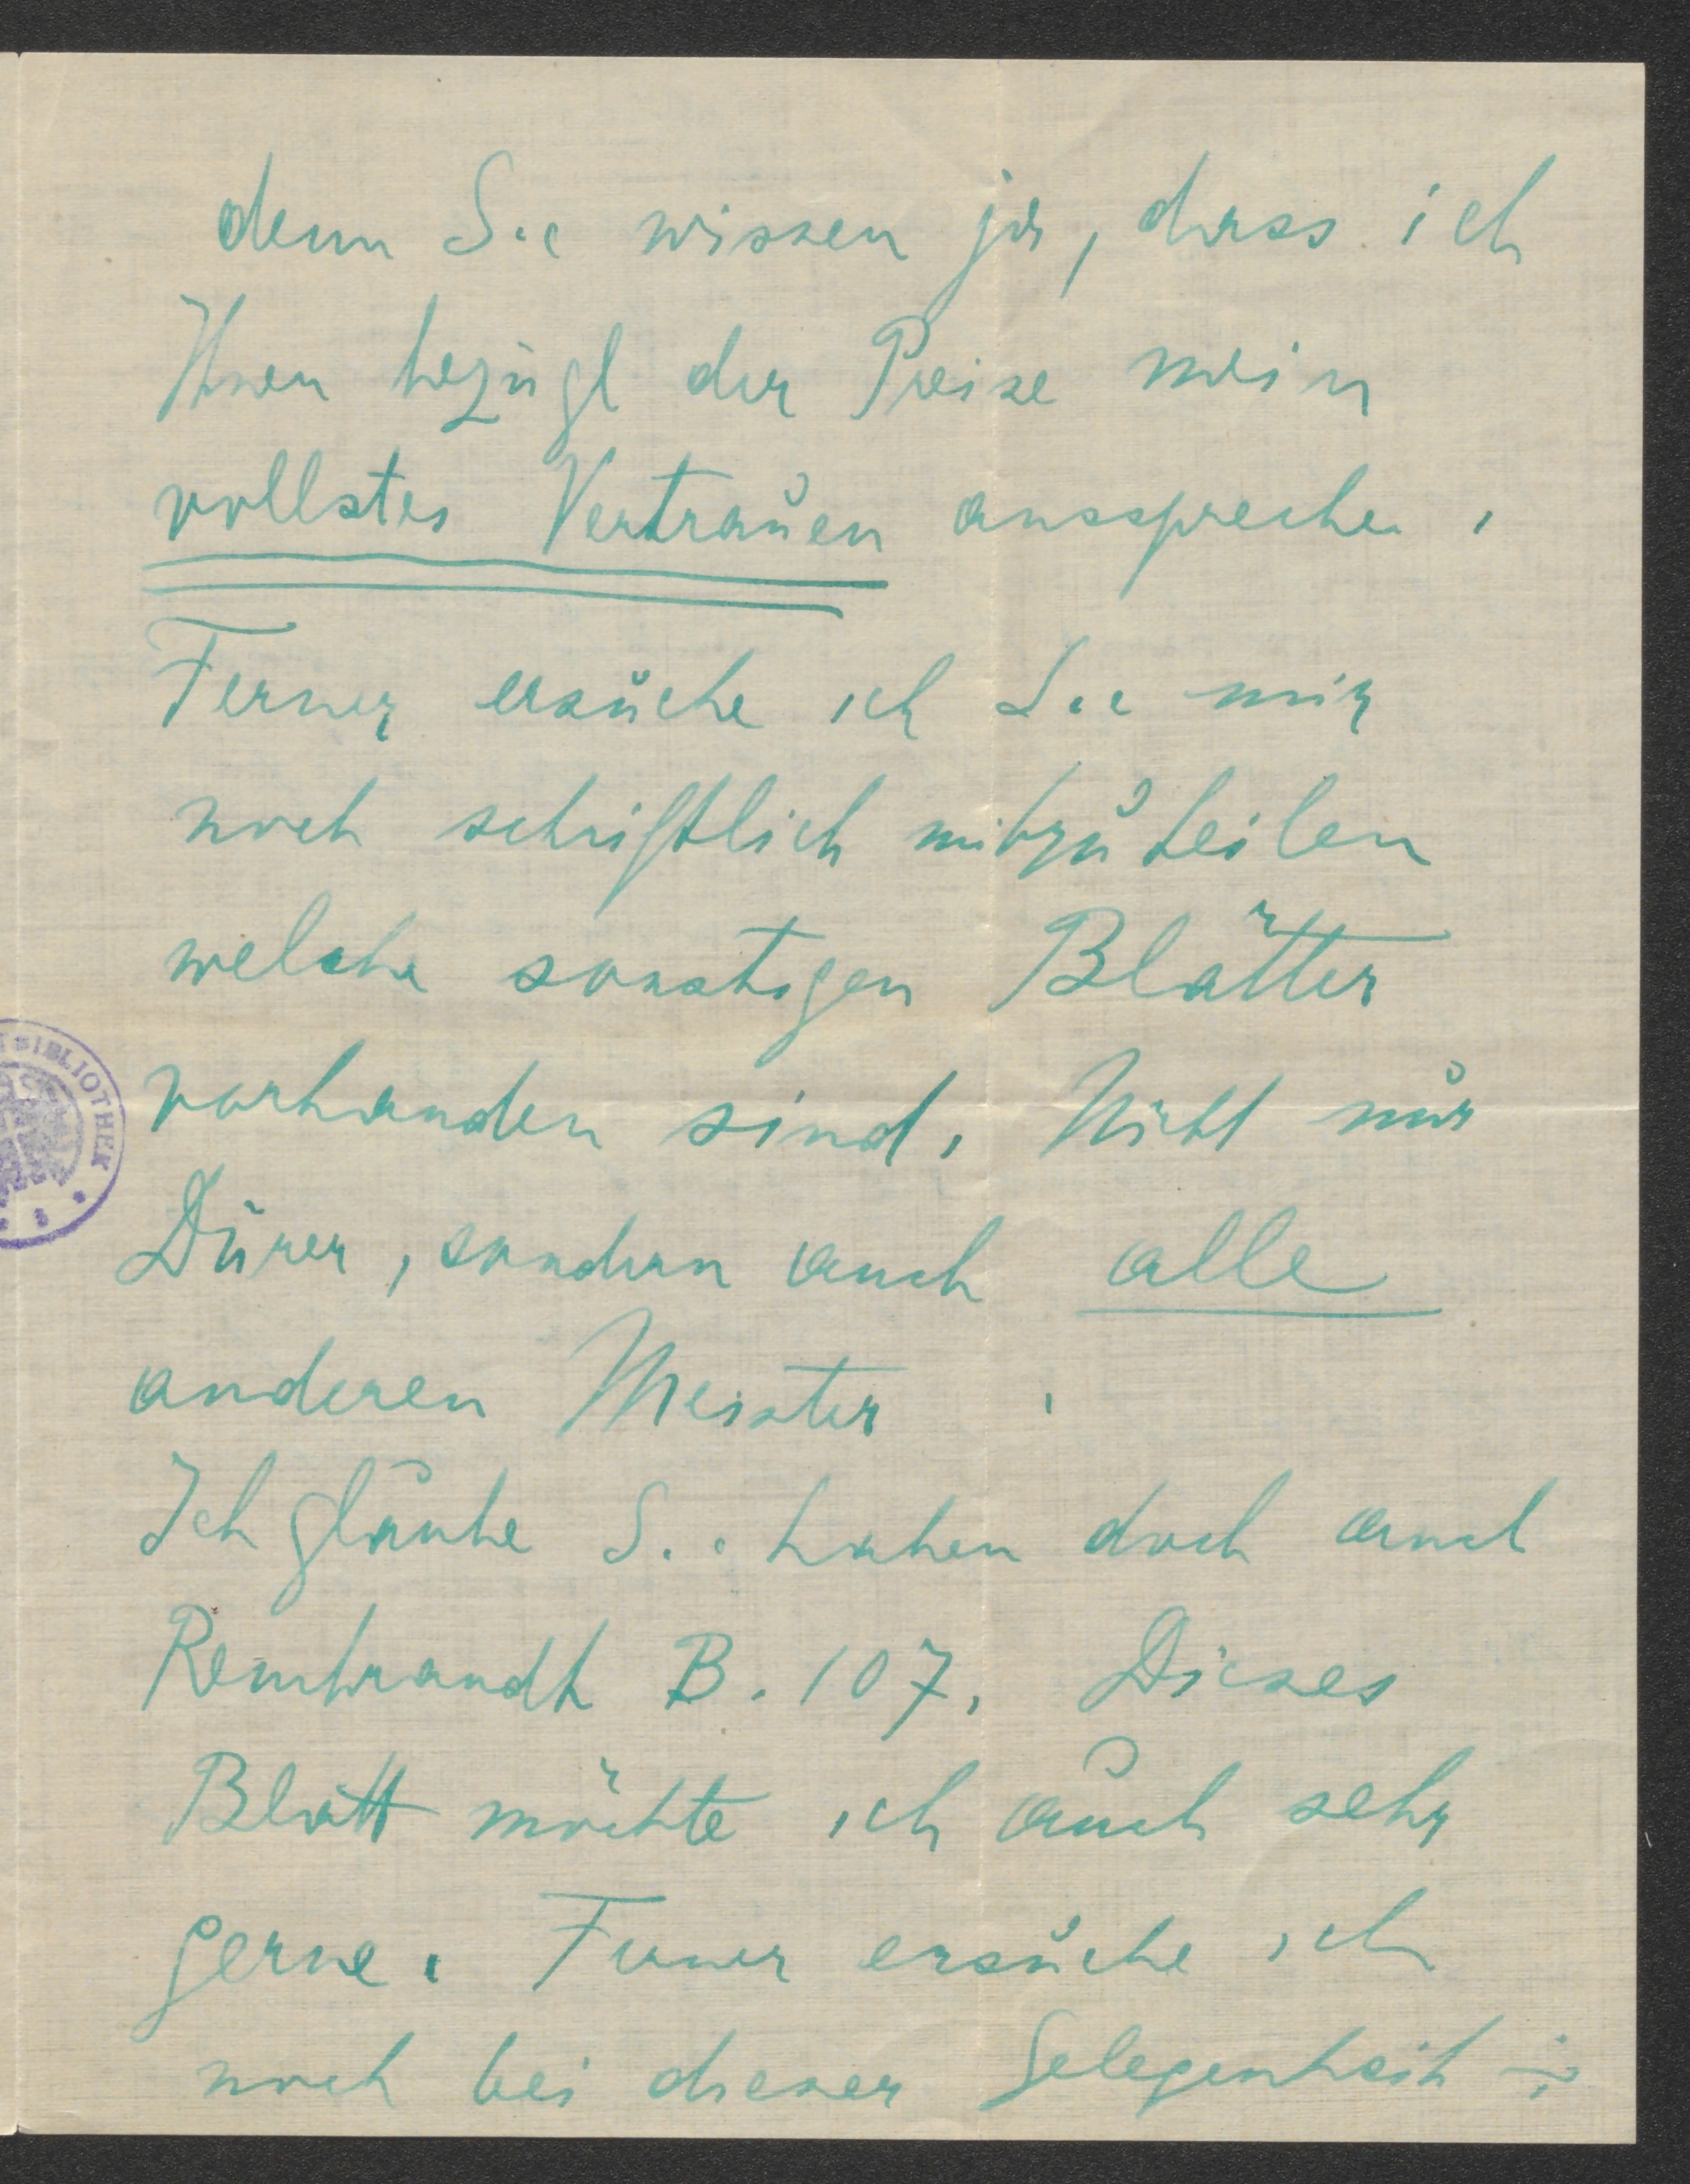 denn Sie wissen ja, dass ich
Ihnen bezügl der Preise mein
vollstes Vertrauen ausspreche.
Ferner ersuche ich Sie mir
noch schriftlich mitzuteilen
welche sonstigen Blätter
vorhanden sind. Nicht nur
Dürer, sondern auch alle
anderen Meister.
Ich glaube Sie haben doch auch
Rembrandt B. 107. Dieses
Blatt möchte ich auch sehr
gerne. Ferner ersuche ich
noch bei dieser Gelegenheit ÷
BIBLIOTHEK